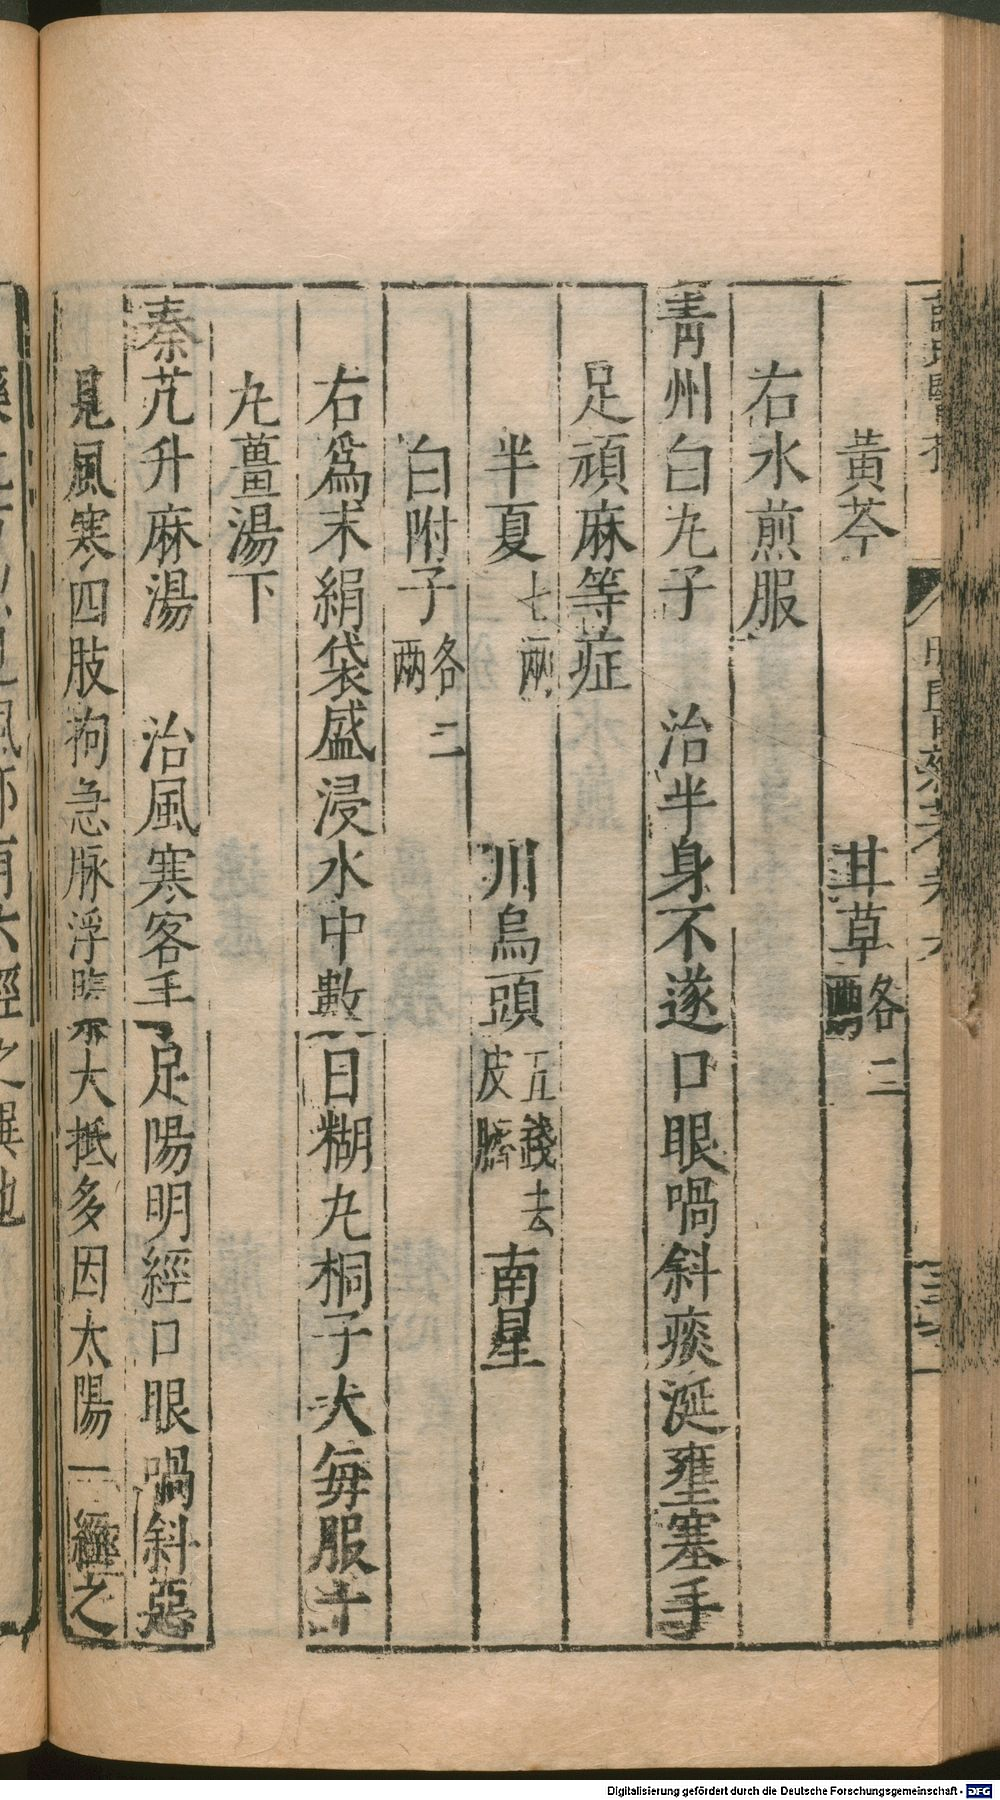 黃芩　甘草各二兩
右水煎服
青州白九子　治半身不遂口眼喎斜痰涎壅塞手
足頑麻等症
半夏七兩　川烏頭五錢去皮臍　南星
白附子各二兩
右爲末絹袋盛浸水中數日糊九桐子大每服十
九薑湯下
秦艽升麻湯　治風寒客手足陽明經口眼喎斜惡
見風寒四肢拘急脉浮大抵多因太陽一經之
Digitalisierung gefördert durch die Deutsche Forschungsgemeinschaft - DFG